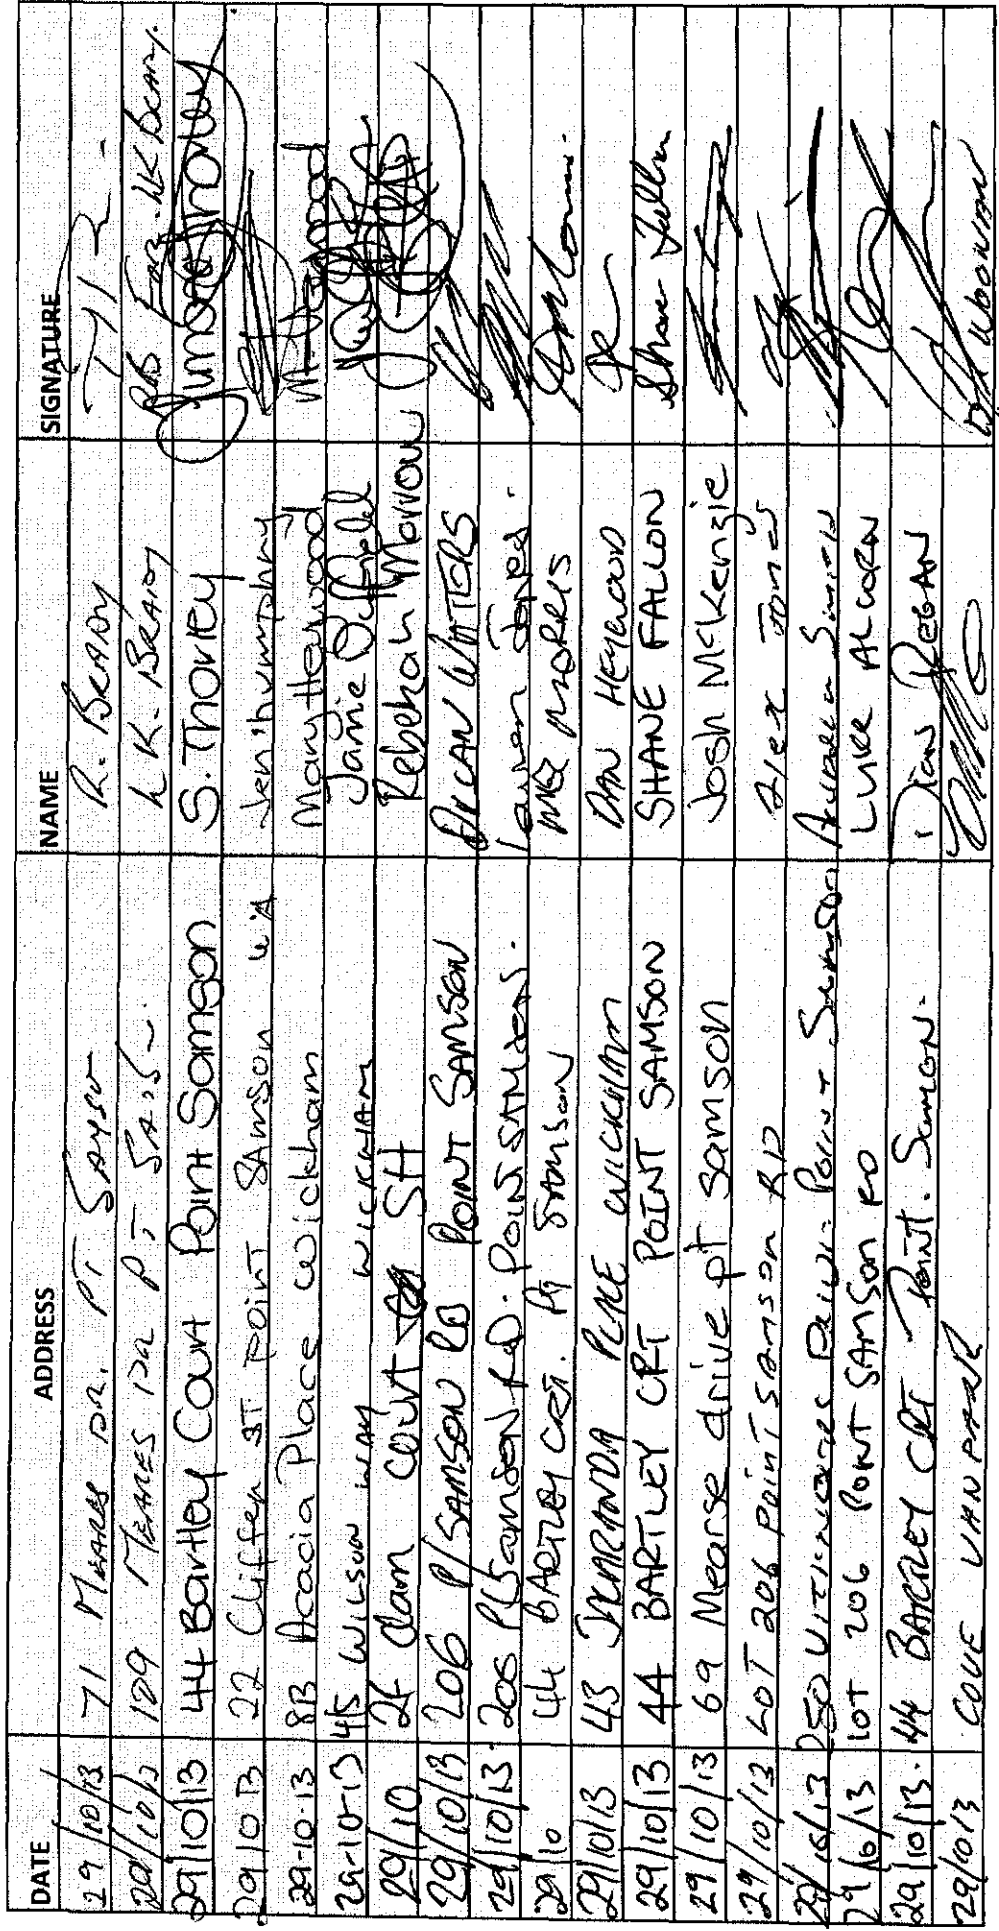 DATE ADDRESS NAME SIGNATURE
29/10/13 71 MEARES DR. PT R. BRADY
29/10/13 129 MEARES DR PT LK. BRADY FOR LK BRADY.
29/10/13 44 Bartley Court Point Samson S. Thorley
29/10 13 22 Cliffen ST POINT SAMSON WA Jen humphry
29-10-13 8B Acacia Place Wickham Mary Heywood
29-10-13 45 WILSON WAY WICKHAM Janie
29/10 2f Clam Court SH Rebekah Morrow
29/10/13 206 P/SAMSON RD POINT SAMSON WATERS
29/10/13. 206 Pt Samson Rd. POINT SAMSON. Lauren Jones.
29/10 44 BARTLEY CRT. Pt SAMSON MORRIS
29/10/13 43 JACARANDA PLACE WICKHAM DAN HEYWOOD
29/10/13 44 BARTLEY CRT POINT SAMSON SHANE FALLON Shane Fallon
29/10/13 69 Mearse drive pt Samson Josh McKenzie
29/10/13 LOT 206 POINT SAMSON RD Alex Jones
29/10/13 Point Samson
29/10/13 LOT 206 POINT SAMSON RD LUKE ALCORN
29/10/13. 44 BARTLEY CRT Point. Samson. REGAN
29/10/13 COVE VAN PARK